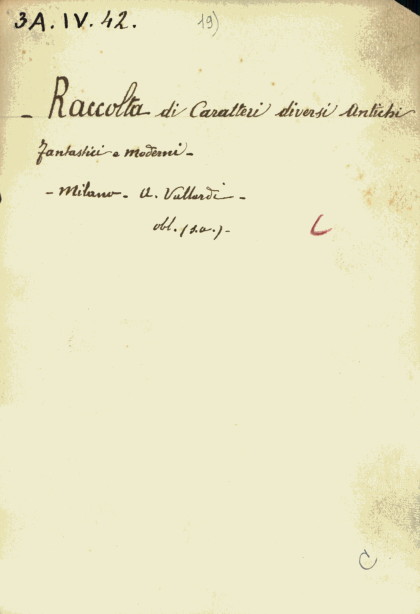 3A.IV.42. 19)
- Raccolta di Caratteri diversi Antichi
Fantastici e Moderni -
- Milano - A. Vallardi -
obl. (s.a.) -
C